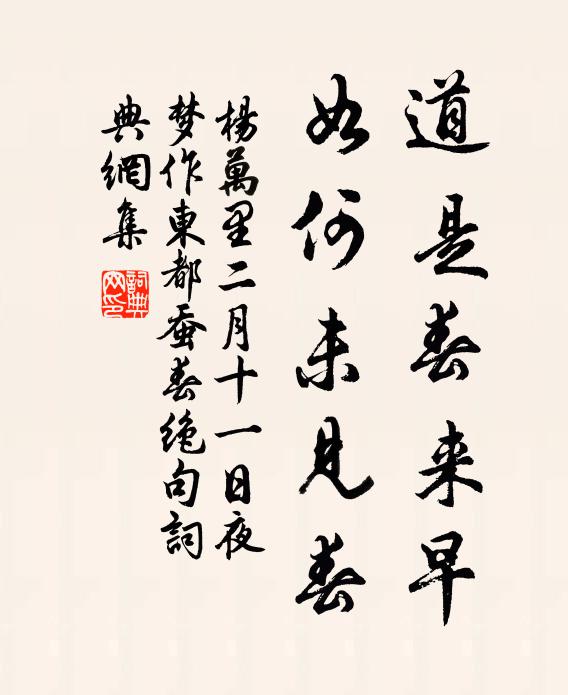 道是春来早
如何未见春
楊萬里二月十一日夜
梦作東都蚤春绝句詞
典網集
詞典
网印